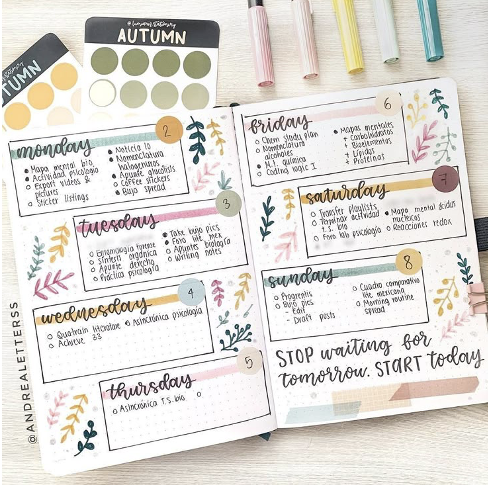 AUTUMN
TUMN
monday
2
Mapa mental bio
Actividad psicología
Export videos &
pictures
Sticker listings
Noticia 10
Nomenclatura
Apunte alcoholes
Coffee stickers
Bujo spread
tuesday
3
Síntesis orgánica
Apunte derecho
Práctica psicología
Take bujo pics
Foro lite mex
Apuntes biología
Writing notes
wednesday
4
Asincrónica psicología
Achieve 33
thursday
5
Asincrónica T.S. bio
friday
6
Chem study plan
Nomenclatura
alcoholes
Coding logic I
Mapas mentales
+ Carbohidratos
+ Bioelementos
+ Lípidos
+ Proteínas
saturday
7
Transfer playlists
Reportar actividad
T.S. bio
Foro lab psicología
Mapa mental ácidos
nucleicos
Reacciones redox
sunday
8
Bujo pics
- Edit
- Draft posts
Cuadro comparativo
lite mexicana
Morning routine
spread
STOP waiting for
tomorrow. START today
@ANDREALETTERSS